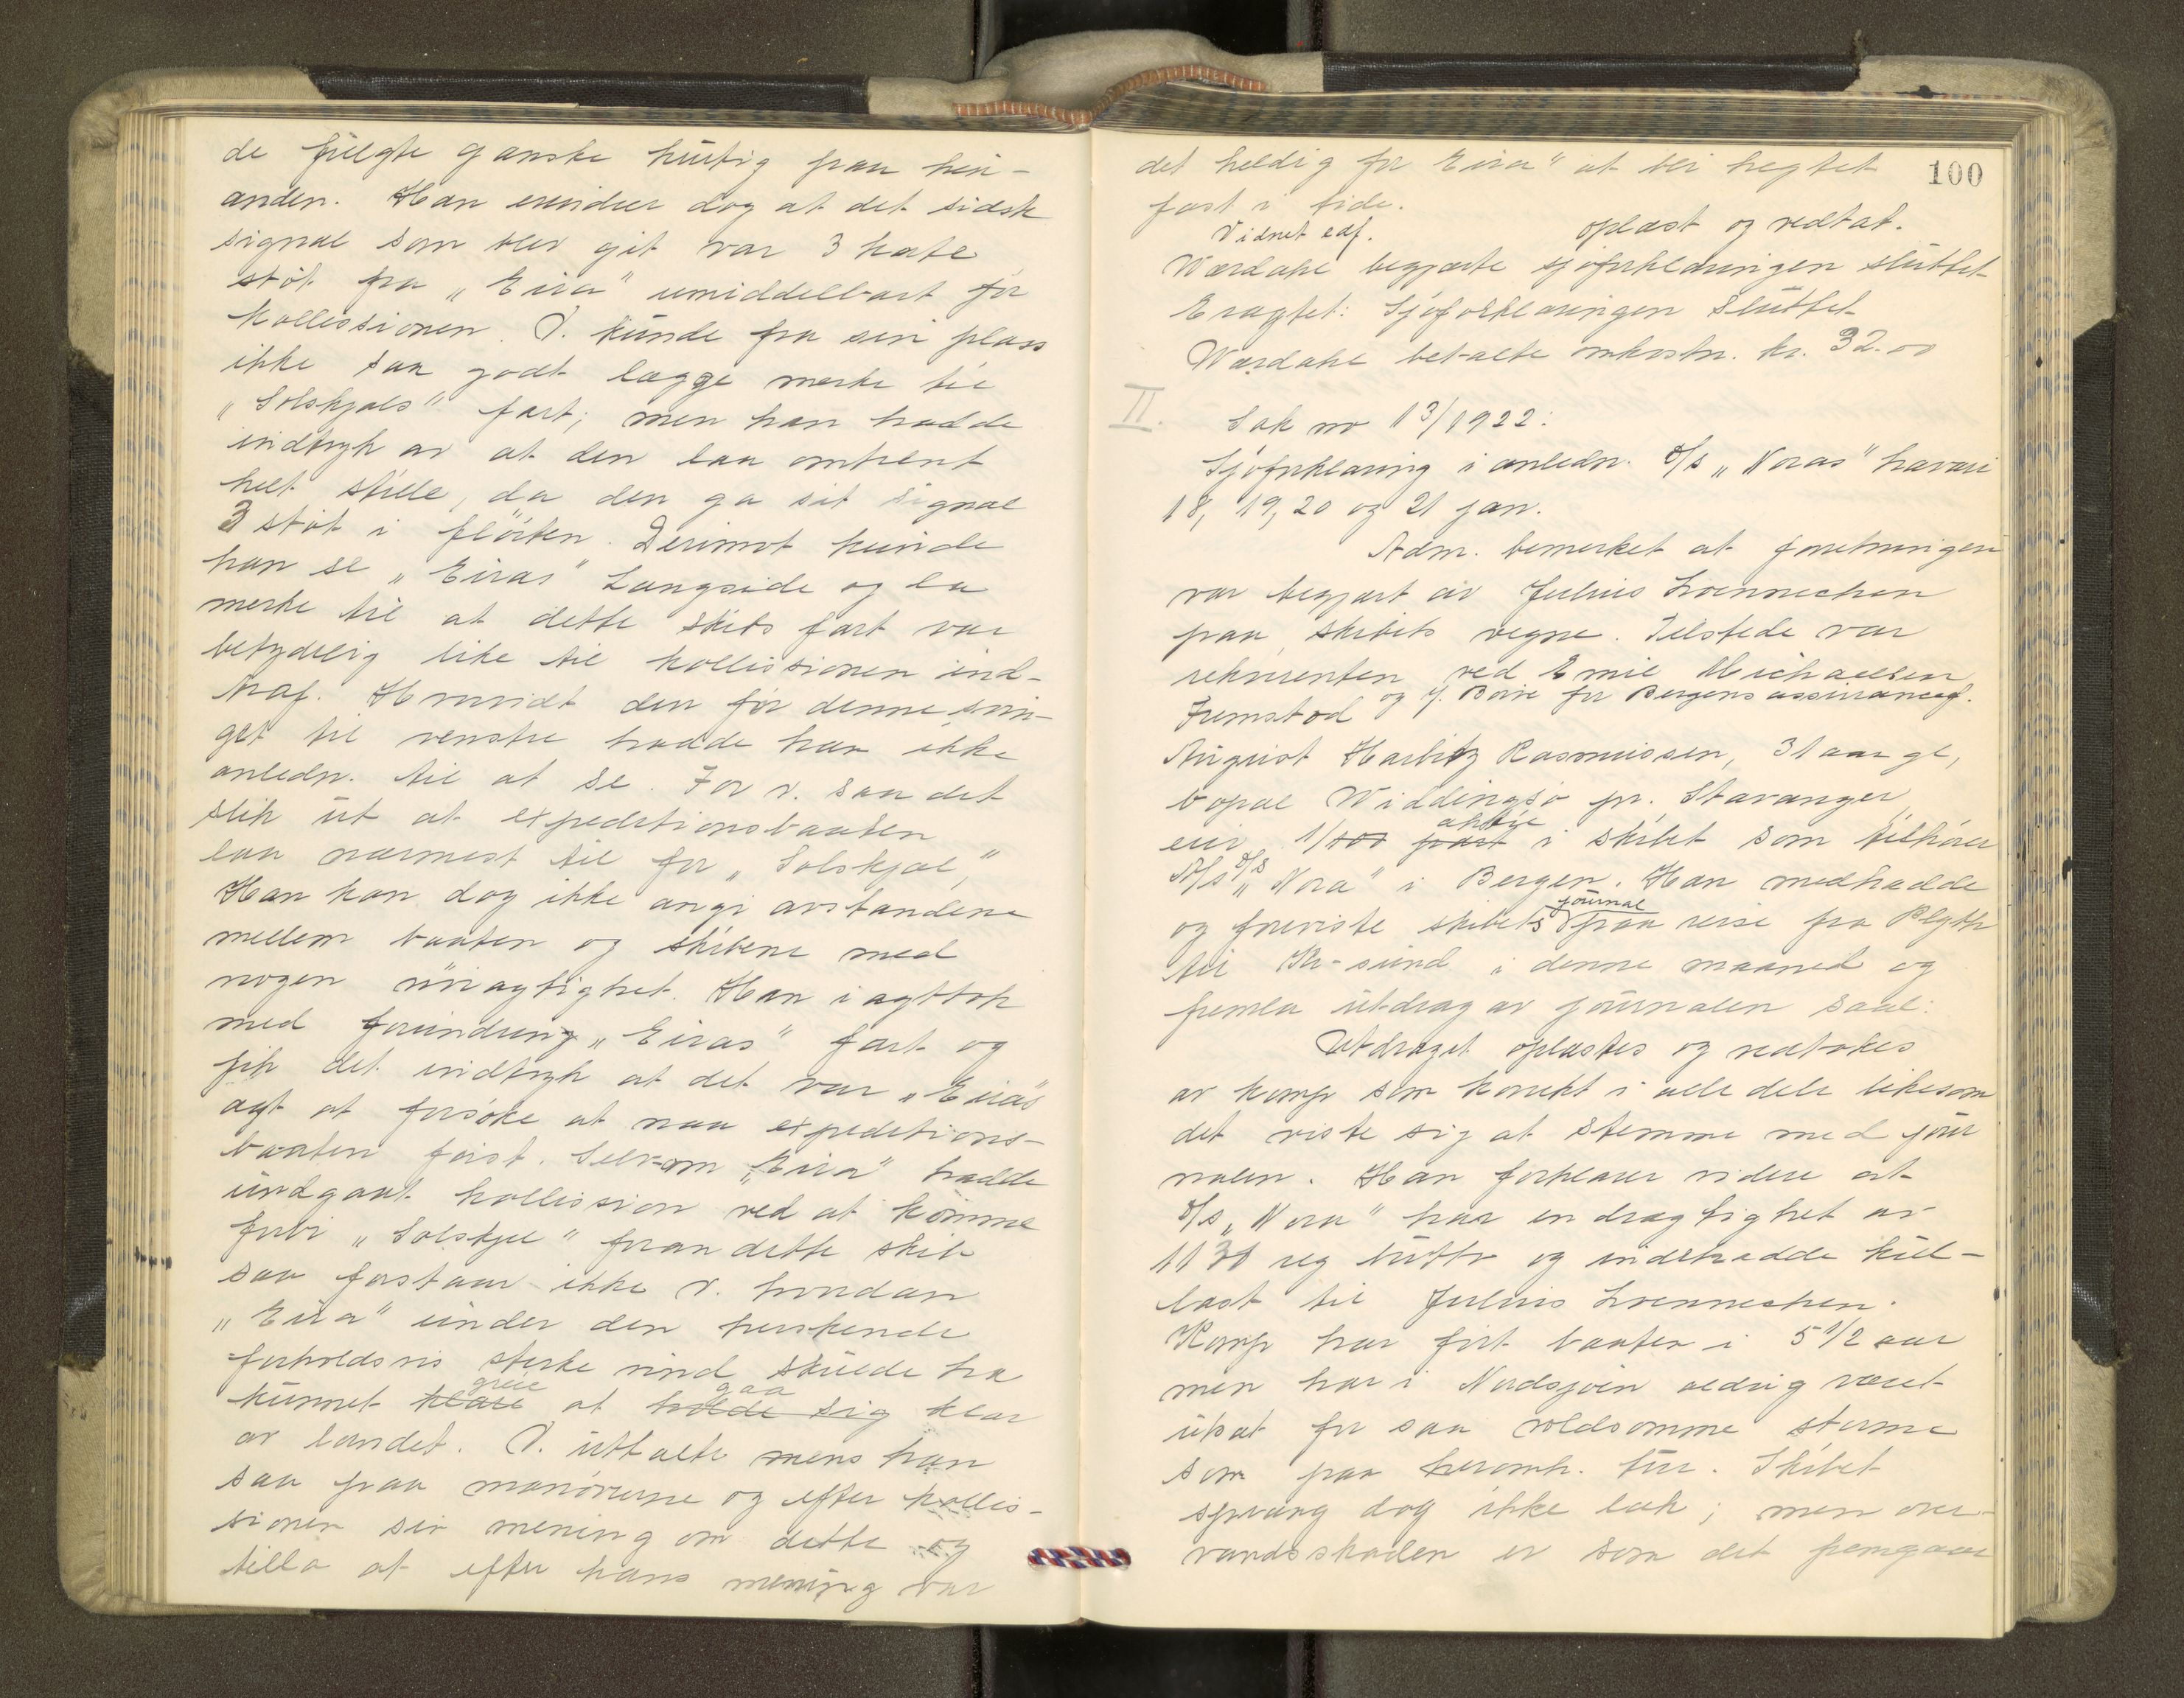 de fulgte ganske hurtig paa hin-
anden. Han erindrer dog at det sidste
signal som blev git var 3 korte
støt fra "Eira" umiddelbart før
kollissionen. V. kunde fra sin plass
ikke saa godt lægge merke til
"Solskjæls" fart; men han hadde
indtryk av at den laa omtrent
helt stille, da den ga sit signal
3 støt i fløiten. Derimot kunde
han se "Eiras" Langside og la
merke til at dette skibs fart var
betydelig like til kollissionen ind-
traf. Hvorvidt den før denne svin-
get til venstre hadde han ikke
anledn. til at se. For v. saa det
slik ut at expeditionsbaaten
laa nærmest til for "Solskjæl",
Han kan dog ikke angi avstandene
mellem baaten og skibene med
nogen nöiagtighet. Han iagttok
med forundring "Eiras" fart og
fik det indtryk at det var "Eiras"
agt at forsøke at naa expeditions-
baaten først. Selv om "Eira" hadde
undgaat kollission ved at komme
forbi "Solskjel" foran dette skib
saa forstaar ikke v. hvordan
"Eira" under den herskende
forholdsvis sterke vind skulde ha
kunnet klare greie at holde sig gaa klar
av landet. V. uttalte mens han
saa paa manøvrene og efter kollis-
sionen sin mening om dette og
tilla at efter hans mening var
100
det heldig for Eira" at bli hegtet
fast i tide.
Vidnet edf. oplæst og vedtat.
Wærdahl begjærte sjøforklaringen sluttet
Eragtet: Sjøforklaringen sluttet
Wærdahl betalte omkostn. kr. 32.00
II. Sak no 13/1922:
Sjøforklaring i anledn. D/s "Noras" havari
18, 19, 20 og 21 jan.
Adm. bemerket at forretningen
var begjært av Julius Loennechen
paa skibets vegne. Tilstede var
rekvirenten ved Emil Michaelsen
og J. Bøve for Bergens assurancef.
Fremstod
August Harbitz Rasmussen, 31 aar gl,
bopæl Widdingsjø pr. Stavanger
eier 1/100 part aktie i skibet som tilhører
A/s D/s "Nora" i Bergen. Han medhadde
og foreviste skibets journal paa reise fra Blyth
til Kr-sund i denne maaned og
fremla utdrag av journalen saal:
Utdraget oplæstes og vedtokes
av komp som korrekt i alle dele likesom
det viste sig at stemme med jour
nalen. Han forklarer videre at
D/s "Nora" har en drægtighet av
1130 reg brutto og indehadde kul-
last til Julius Loennechen.
Komp har ført baaten i 5 1/2 aar
men har i Nordsjøen aldrig været
utsat for saa voldsomme storme
som paa heromh. tur. Skibet
sprang dog ikke læk; men over-
vandsskaden er som det fremgaar